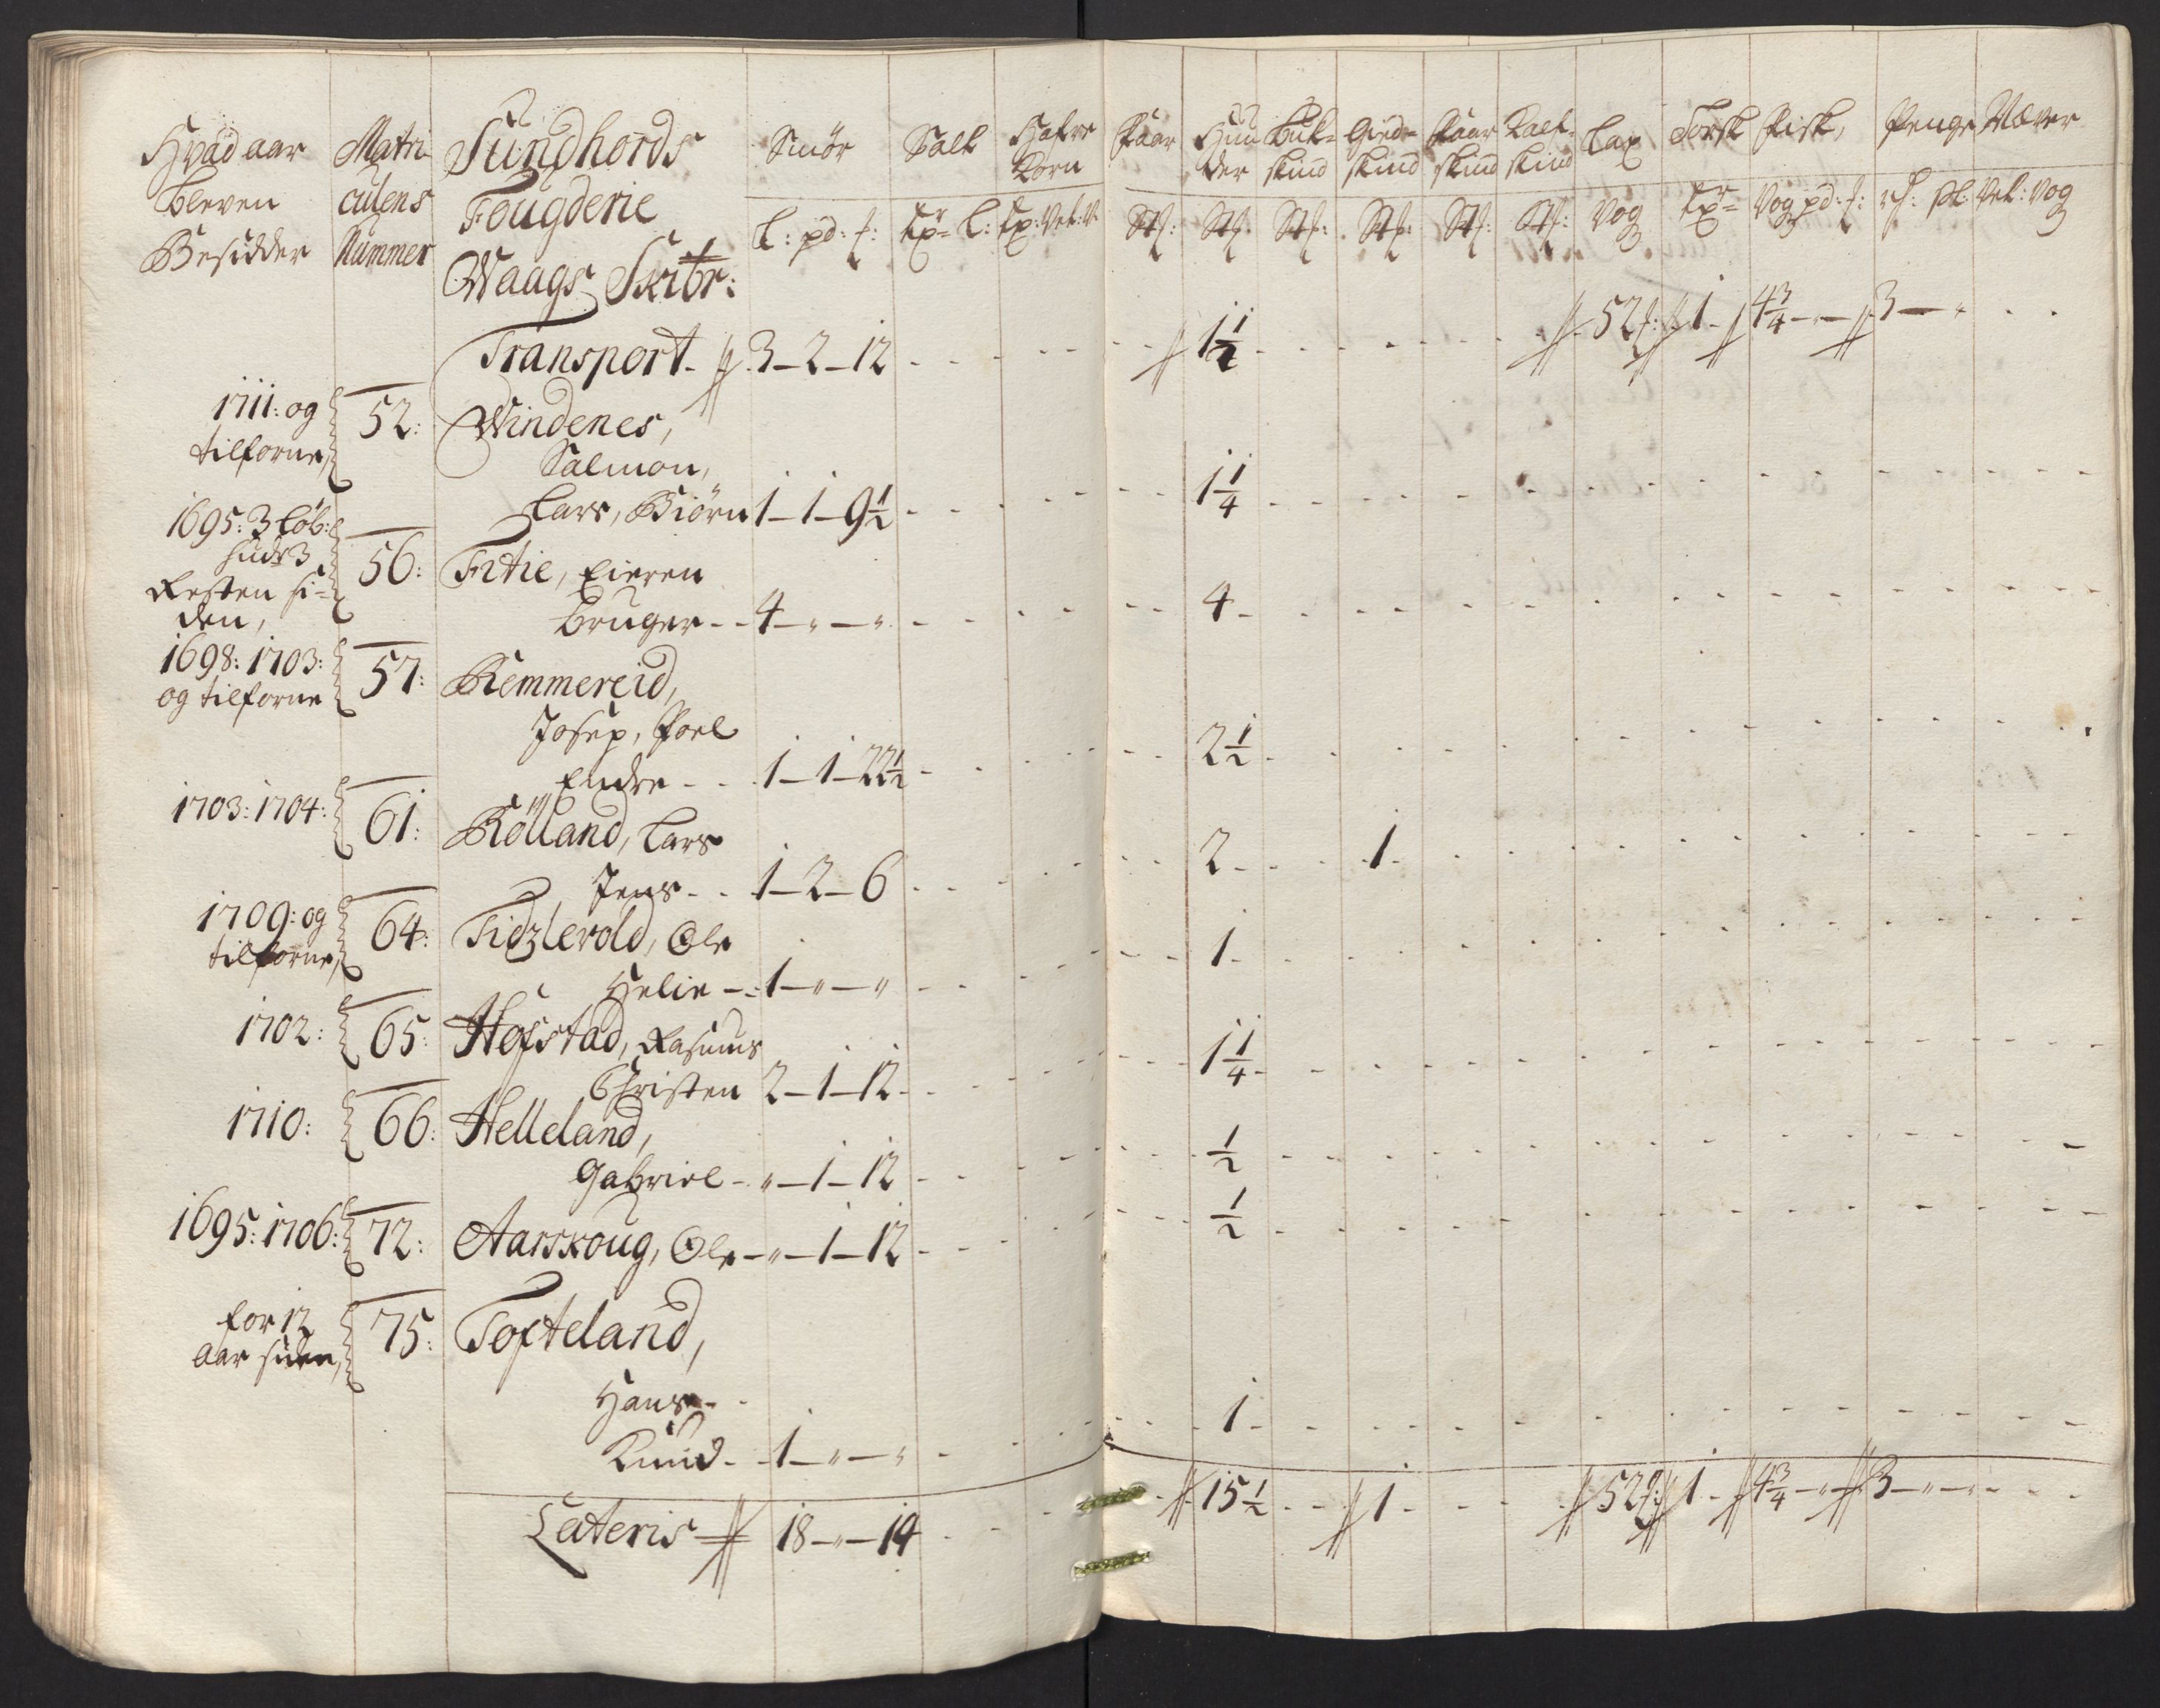 Hvad aar bleven Besidder | Matriculens Nummer | Sundhords Fougderie Waags Skibr: | Smör L: pd: £: | Salt | Hafre Korn | Faar St: | Huuder St: | Bukskind St: | Giedeskind St: | Faarskind St: | Kalfskind St: | Lax Vog | Torsk | Fisk, Vog pd: £: | Penge | Næver Vog
Transport - 3 - 2 - 12 | 1½ | 52 | 1 | 4¾ - " - | 3 - "
1711: og tilforne, | 52: | Windenes,
Salmon,
Lars, Biörn 1 - 1 - 9½ | 1¼
1695: 3 Löb: hud 3 Resten siden, | 56: | Fitie, Eieren
bruger - - 4 - " - " | 4
1698: 1703: og tilforne | 57: | Remmereid,
Josep, Poel
Endre - - 1 - 1 - 22½ | 2½
1703: 1704: | 61: | Rölland, Lars
Jens - - 1 - 2 - 6 | 2 | 1
1709: og tilforne, | 64: | Tidzlevold, Ole
Helie - 1 - " - " | 1
1702: | 65: | Hofstad, Rasmus
Christen 2 - 1 - 12 | 1¼
1710: | 66: | Helleland,
Gabriel - " - 1 - 12 | ½
1695: 1706: | 72: | Aarskoug, Ole - " - 1 - 12 | ½
for 12 aar siden, | 75: | Tofteland,
Hans - -
Knud - 1 - " - " | 1
Lateris 18 - " - 14 | 15½ | 1 | 52 | 1 | 4¾ - " - | 3 - " -